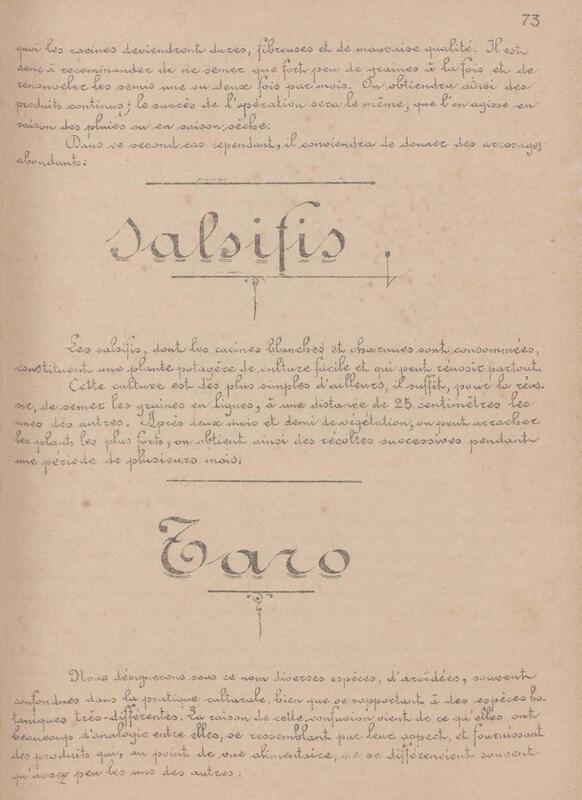 73
quoi les racines deviendront dures, fibreuses et de mauvaise qualité. Il est
donc à recommander de ne semer que fort peu de graines à la fois et de
renouveler les semis une ou deux fois par mois. On obtiendra ainsi des
produits continus; le succès de l'opération sera le même, que l'on agisse en
saison des pluies ou en saison sèche.
Dans ce second cas cependant, il conviendra de donner des arrosages
abondants:
Salsifis.
Les salsifis, dont les racines blanches et charnues sont consommées,
constituent une plante potagère de culture facile et qui peut réussir partout.
Cette culture est des plus simples d'ailleurs, il suffit, pour la réus-
sir, de semer les graines en lignes, à une distance de 25 centimètres les
unes des autres. Après deux mois et demi de végétation, on peut arracher
les plants les plus forts, on obtient ainsi des récoltes successives pendant
une période de plusieurs mois;
Taro
Nous désignerons sous ce nom diverses espèces, d'aroïdées, souvent
confondues dans la pratique culturale, bien que se rapportant à des espèces bo-
taniques très-différentes. La raison de cette confusion vient de ce qu'elles ont
beaucoup d'analogie entre elles, se ressemblant par leur aspect, et fournissant
des produits qui, au point de vue alimentaire, ne se différencient souvent
qu'assez peu les uns des autres: